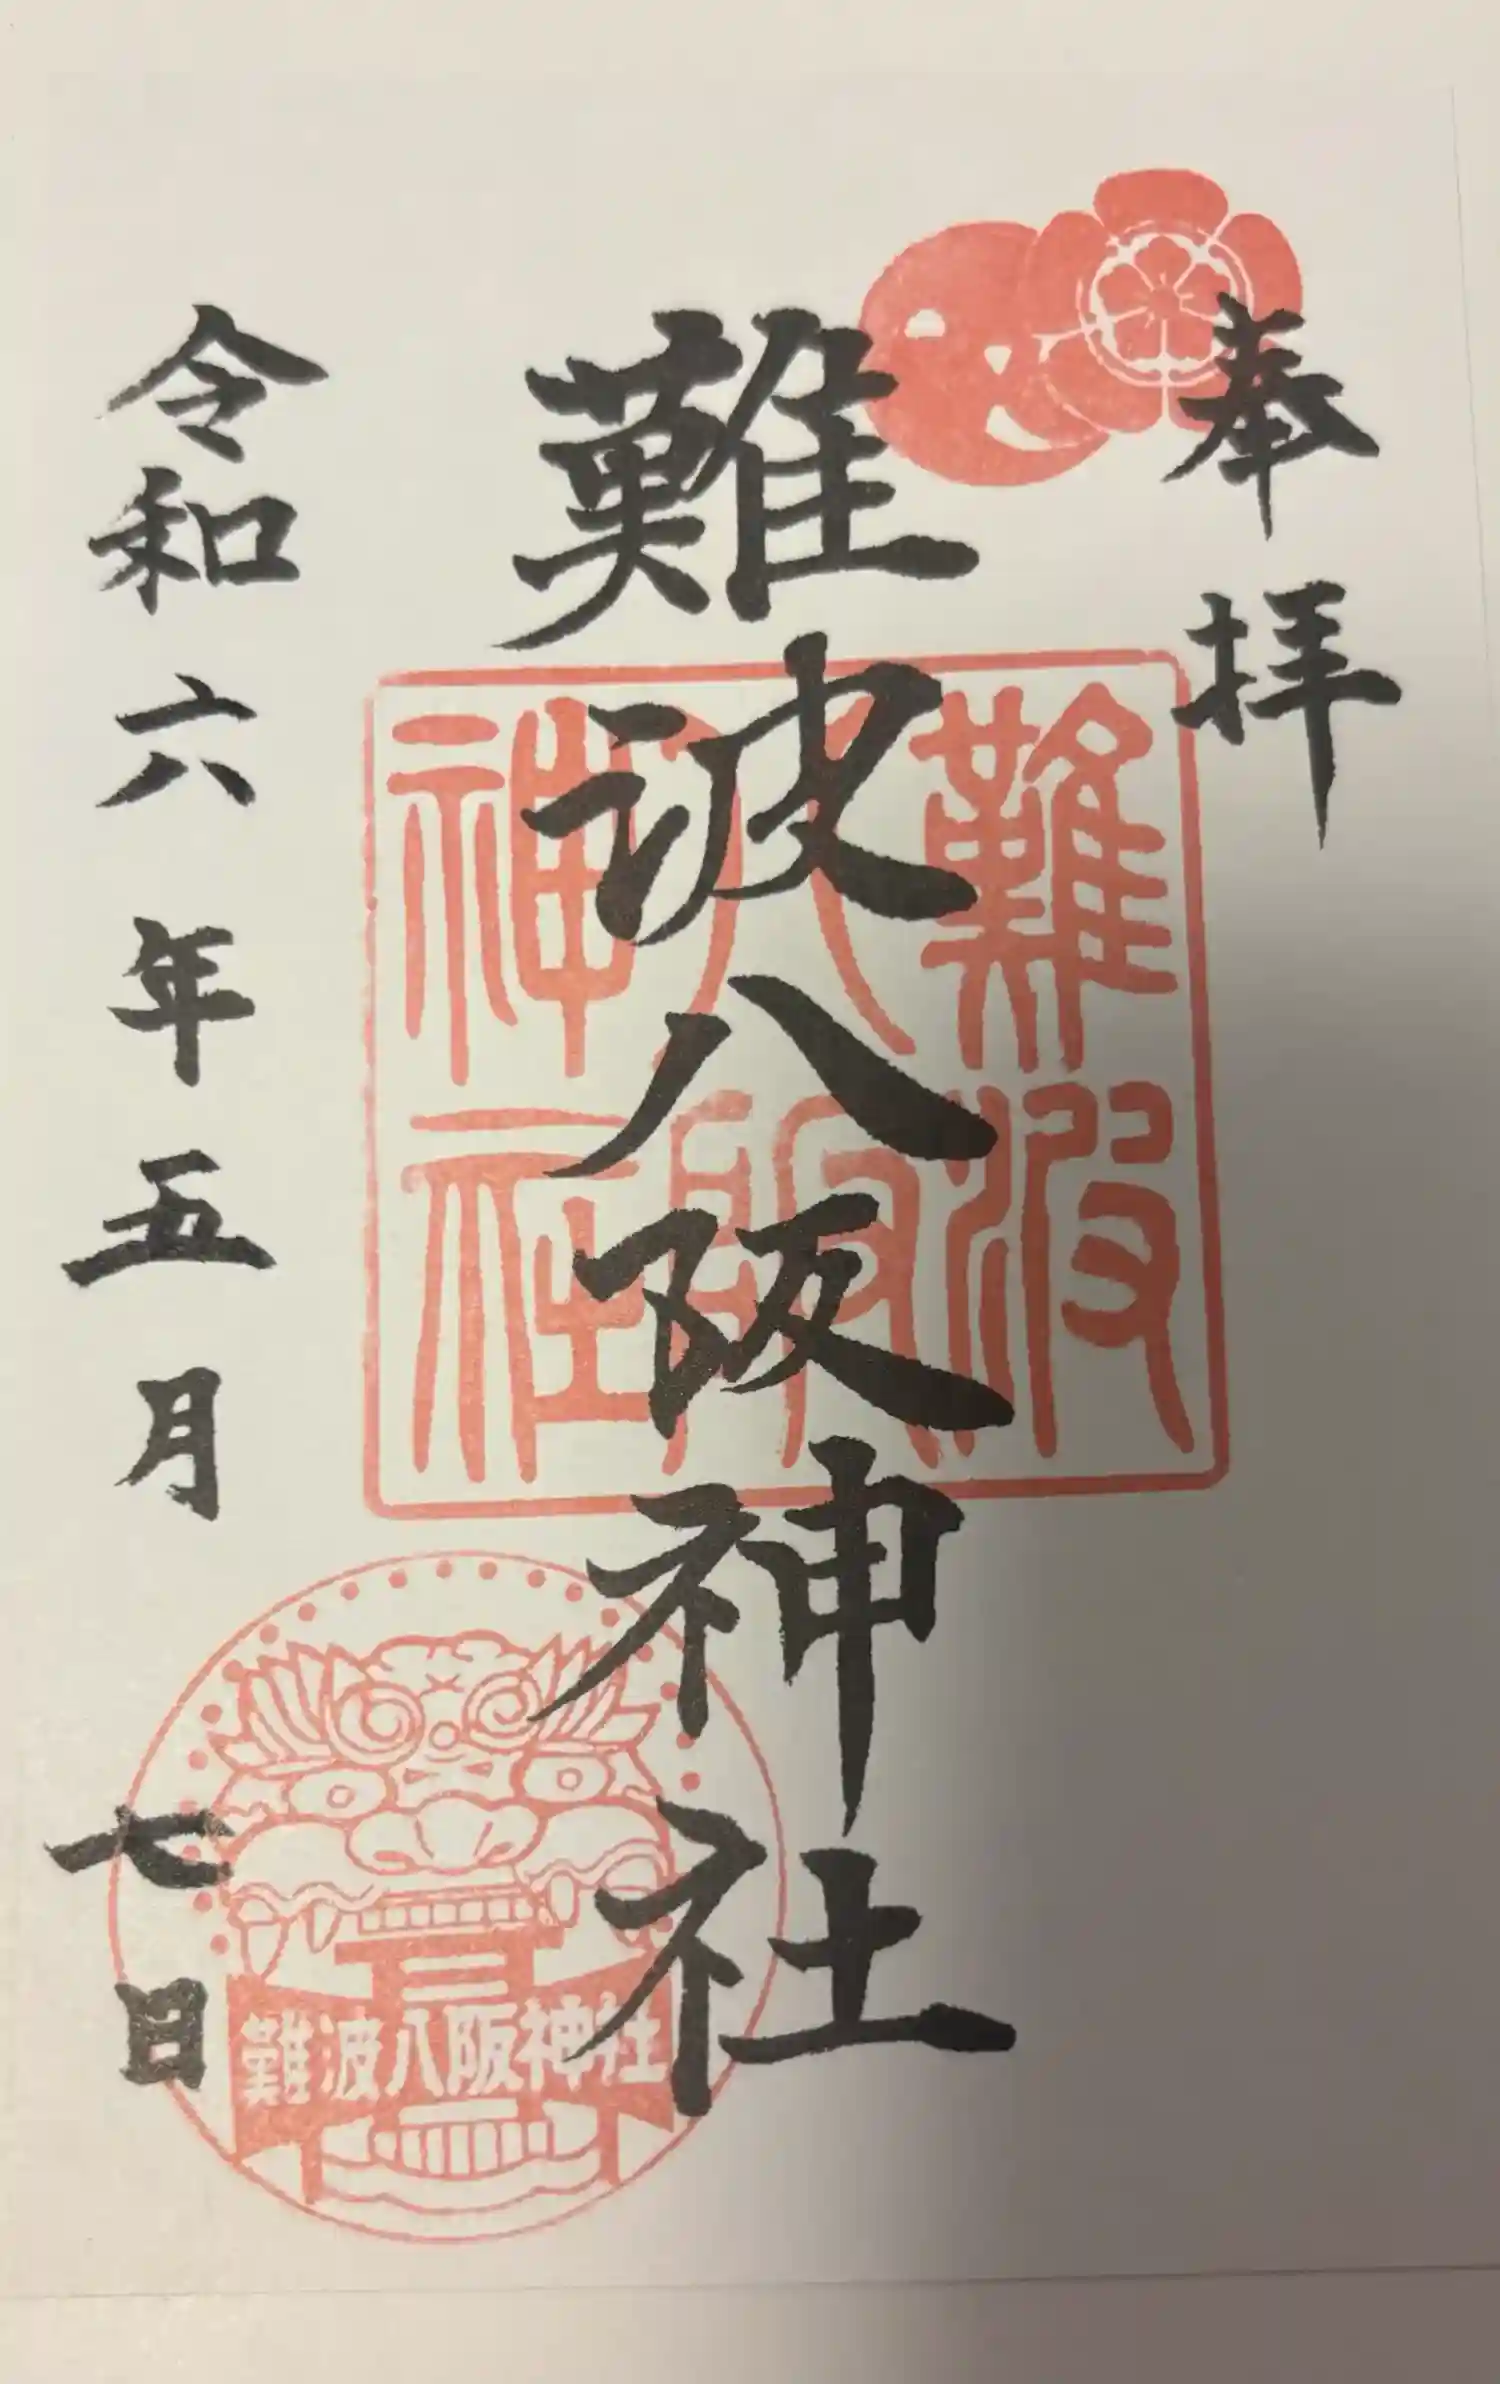 奉拝
難波八阪神社
難波
八阪
神社
令和六年五月七日
難波八阪神社